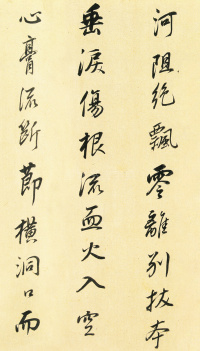 河阻絶飄零離別拔本
垂淚傷根流血火入空
心膏流断節横洞口而